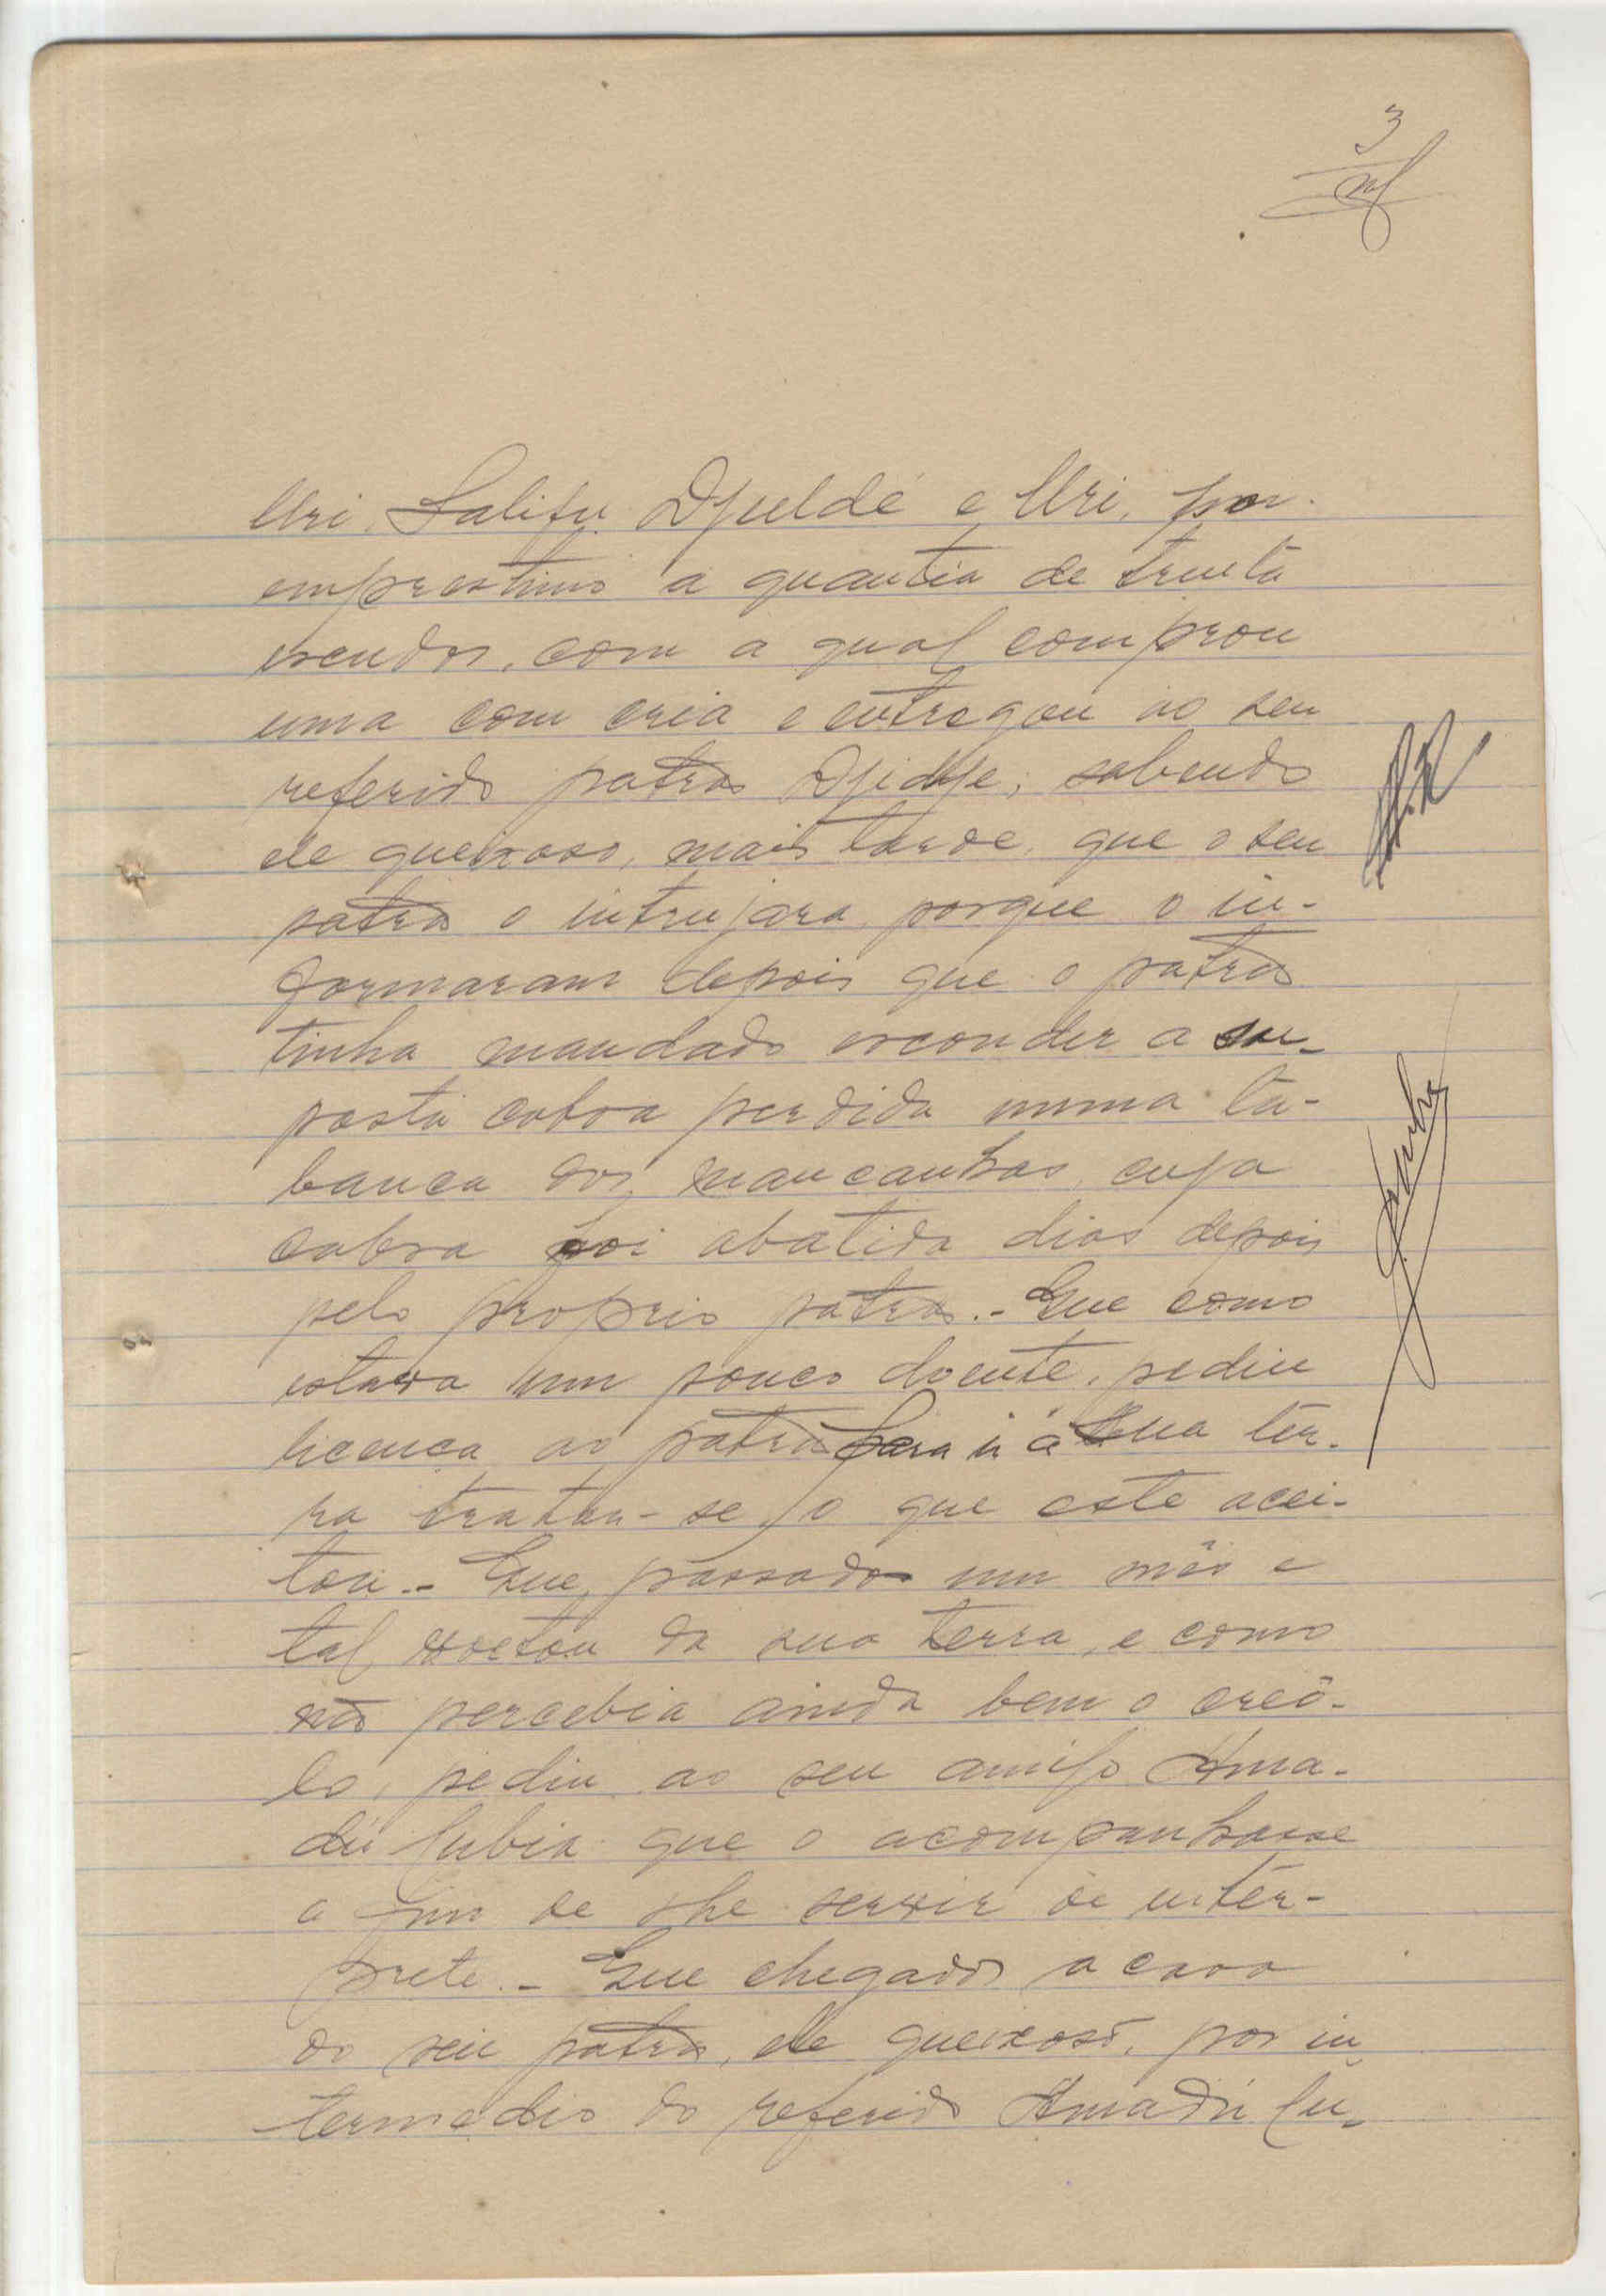 3
Uri, Salifu Djuldé e Uri, por
emprestimo a quantia de trinta
escudos, com a qual comprou
uma com cria e entregou ao seu
referido patrão Djidje; sabendo
ele queixoso, mais tarde, que o seu
patrão o intrujara, porque o in-
formaram depois que o patrão
tinha mandado esconder a su-
posta cabra perdida numa ta-
banca dos mancanhas, cuja
cabra foi abatida dias depois
pelo proprio patrão.- Que como
estava um pouco doente, pediu
licença ao patrão para ir á sua ter-
ra tratar-se, o que este acei-
tou.- Que, passado um mês e
tal voltou da sua terra, e como
não percebia ainda bem o creô-
lo, pediu ao seu amigo Ama-
dú Cubia que o acompanhasse
a fim de lhe servir de intér-
prete.- Que chegados a casa
do seu patrão, ele queixoso, por in
termedio do referido Amadú Cu-